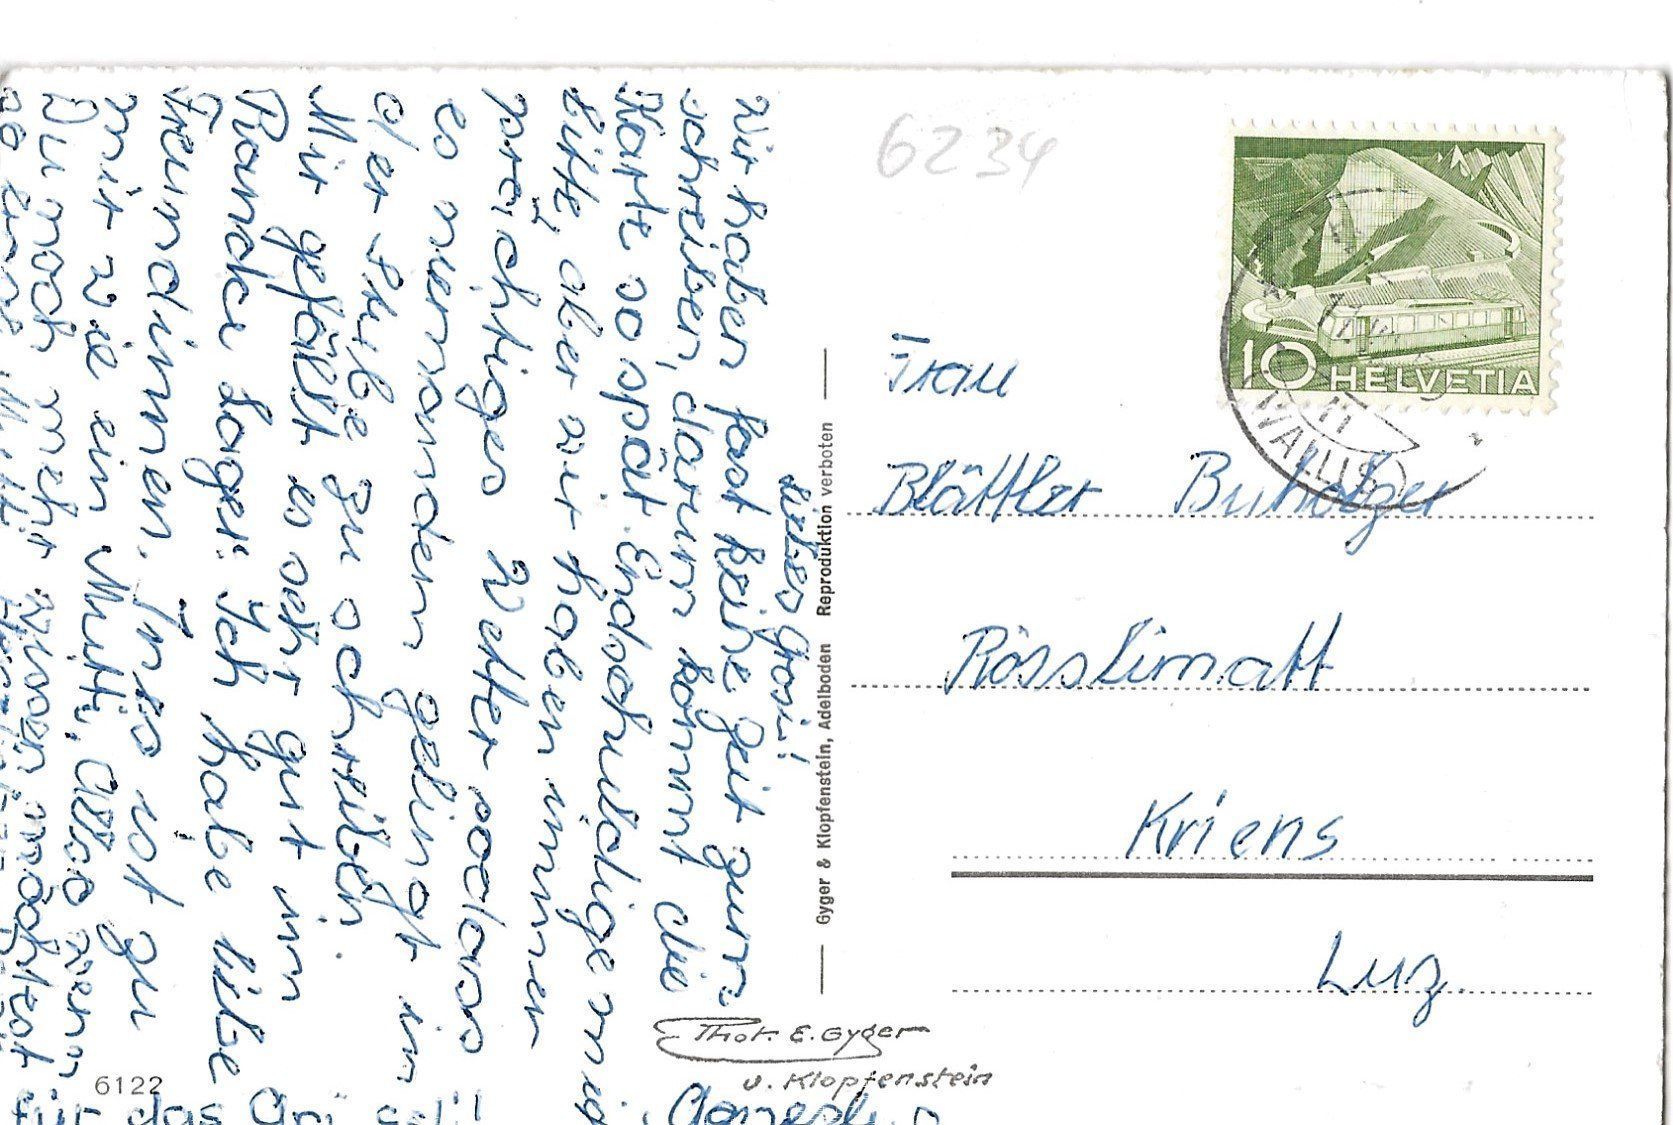 Liebes Grosi!
Wir haben fast keine Zeit zum
schreiben, darum kommt die
Karte so spät. Endschuldige mich
bitte, aber wir haben immer
prächtiges Wetter sodass
es niemanden gelingt in
der Stube zu schreiben.
Mir gefällt es sehr gut im
Randa Lager. Ich habe liebe
Freundinnen. Ines ist zu
mir wie ein Mutti, Also wenn
Du noch mehr wissen möchtest
so
für das
6122
Gyger & Klopfenstein, Adelboden Reproduktion verboten
Phot. E. Gyger
u. Klopfenstein
6234
10 HELVETIA
(WALLIS)
Frau
Blättler Buholzer
Rösslimatt
Kriens
Luz.